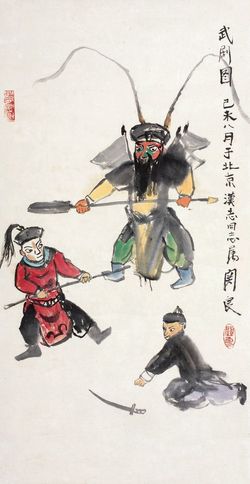 武剧图 己未八月于北京 漢志同志属 関良